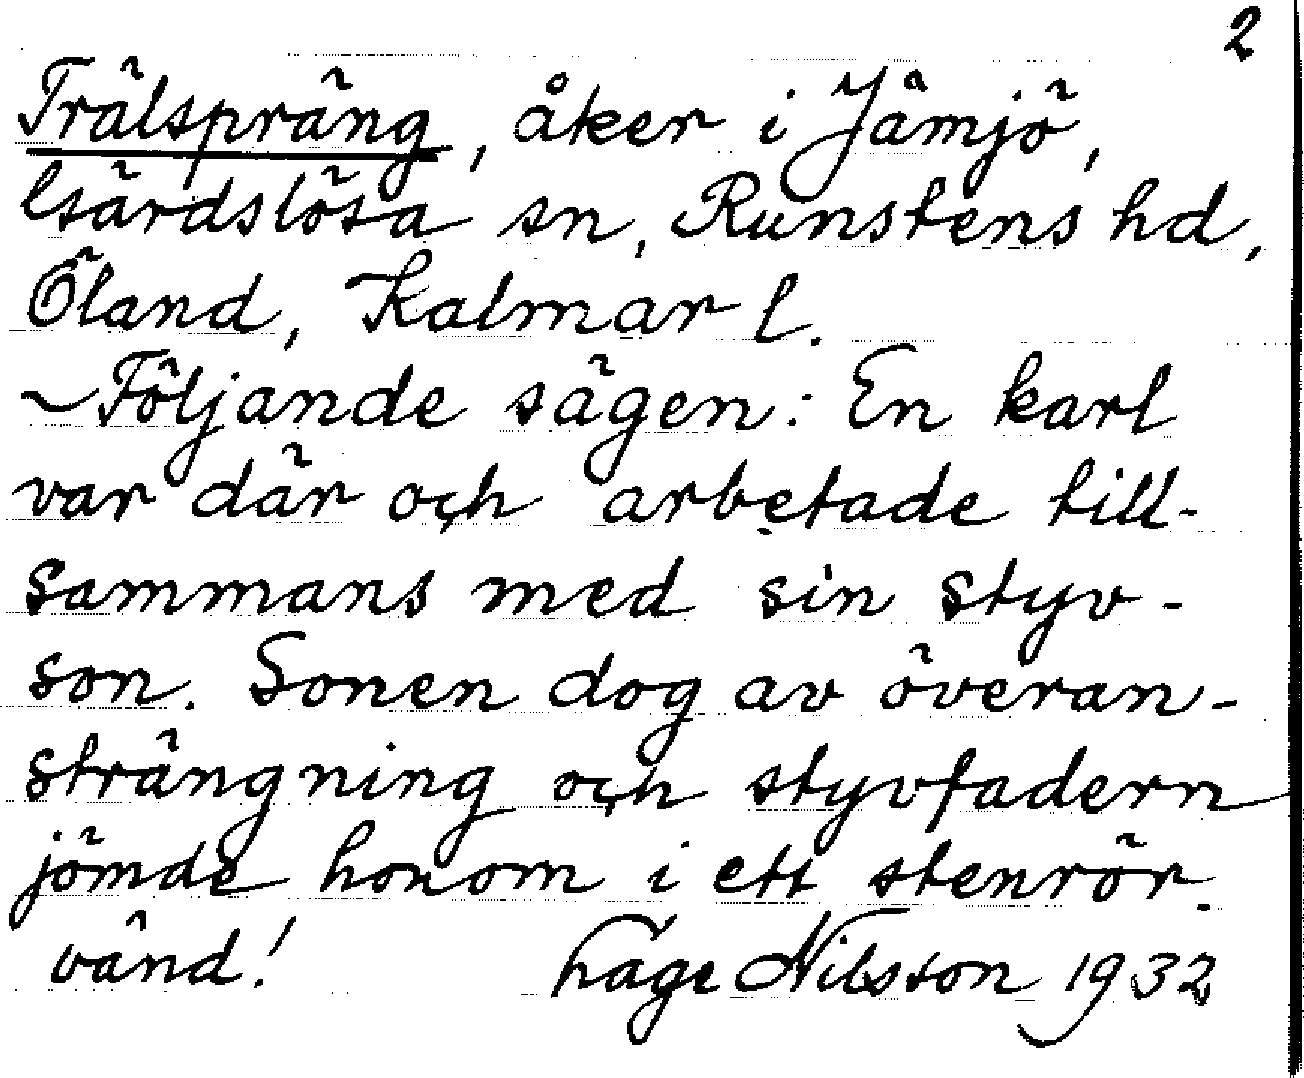 2
Trälspräng, åker i Jämjö,
Gärdslösa sn, Runstens hd,
Öland, Kalmar l.
~Följande sägen: En karl
var där och arbetade till-
sammans med sin styv-
son. Sonen dog av överan-
strängning och styvfadern
jömde honom i ett stenrör.
vänd! Hage Nilsson 1932